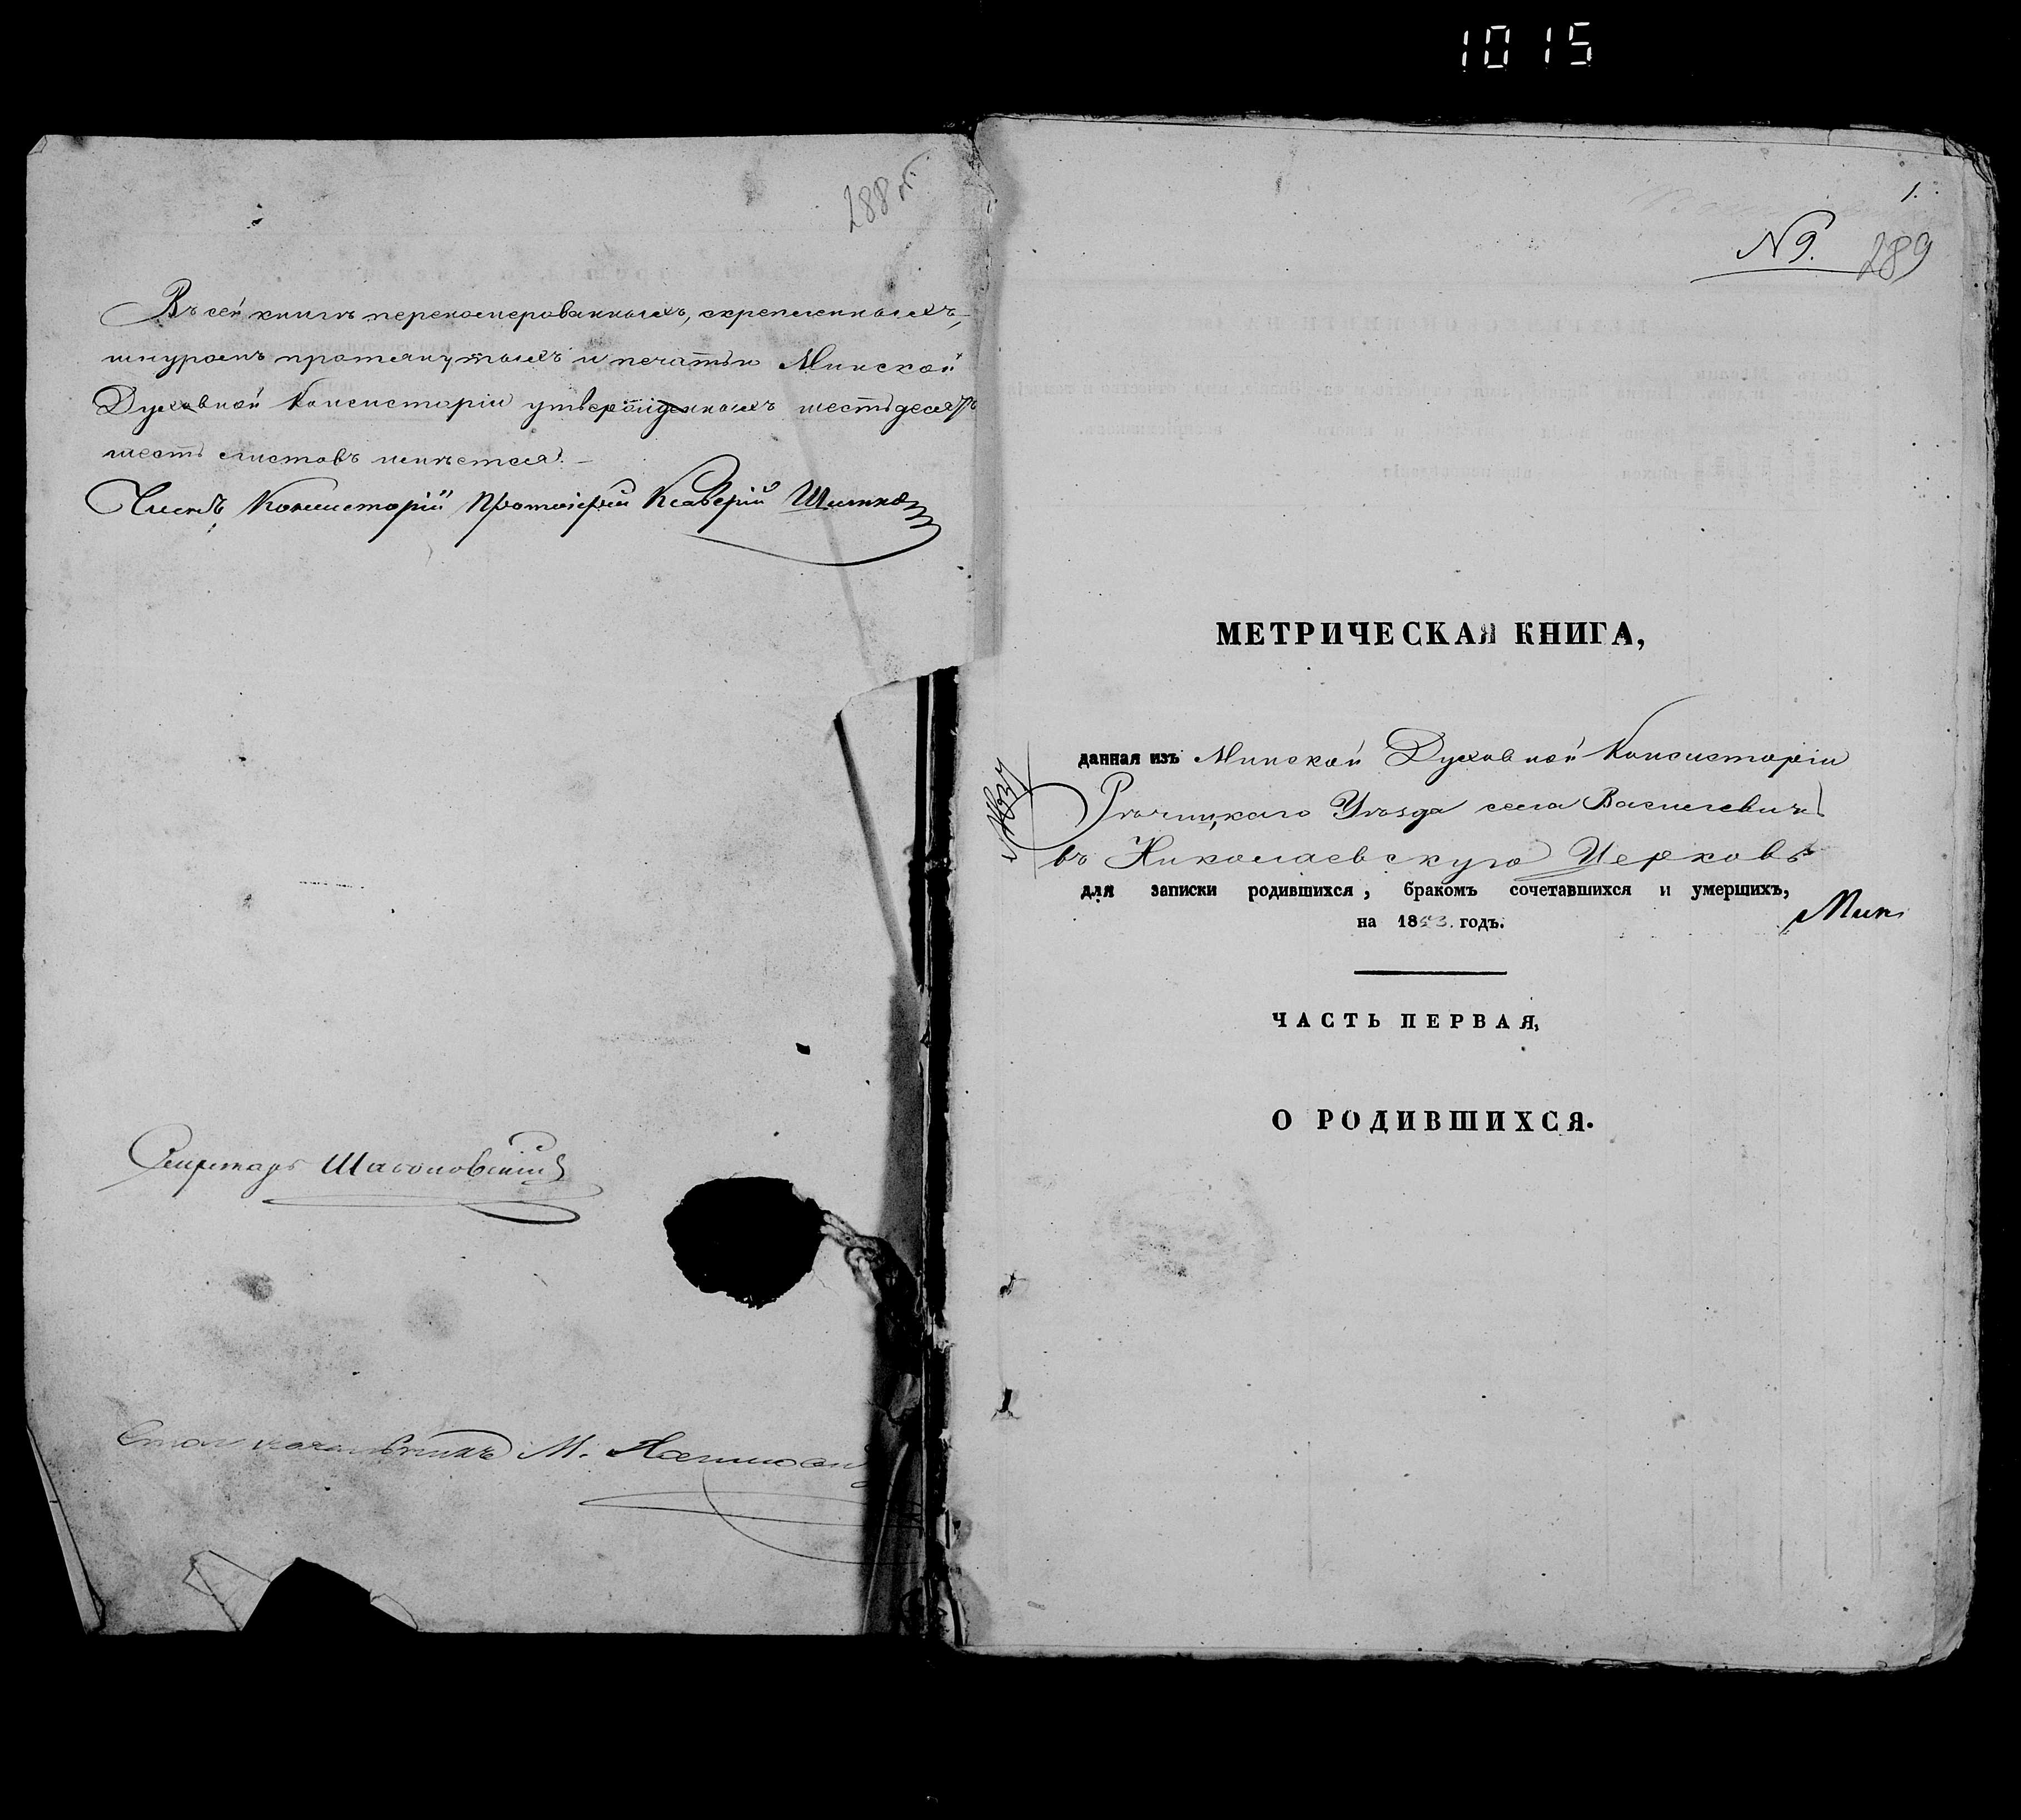 1015
288 об.
Въ сей книгѣ перенумерованныхъ, скрепленныхъ,
шнуромъ протянутыхъ и печатью Минской
Духовной Консисторіи утвержденныхъ шестьдесятъ
шесть листовъ имѣется. –
Членъ Консисторіи Протоіерей Ксаверій
Секретарь
Столоначальникъ М.
1.
№ 9. 289
МЕТРИЧЕСКАЯ КНИГА,
данная изъ Минской Духовной Консисторіи
Рѣчицкаго Уѣзда села Василевичъ
въ Николаевскую Церковь
для записки родившихся, бракомъ сочетавшихся и умершихъ,
на 1853. годъ.
Мин
ЧАСТЬ ПЕРВАЯ,
О РОДИВШИХСЯ.